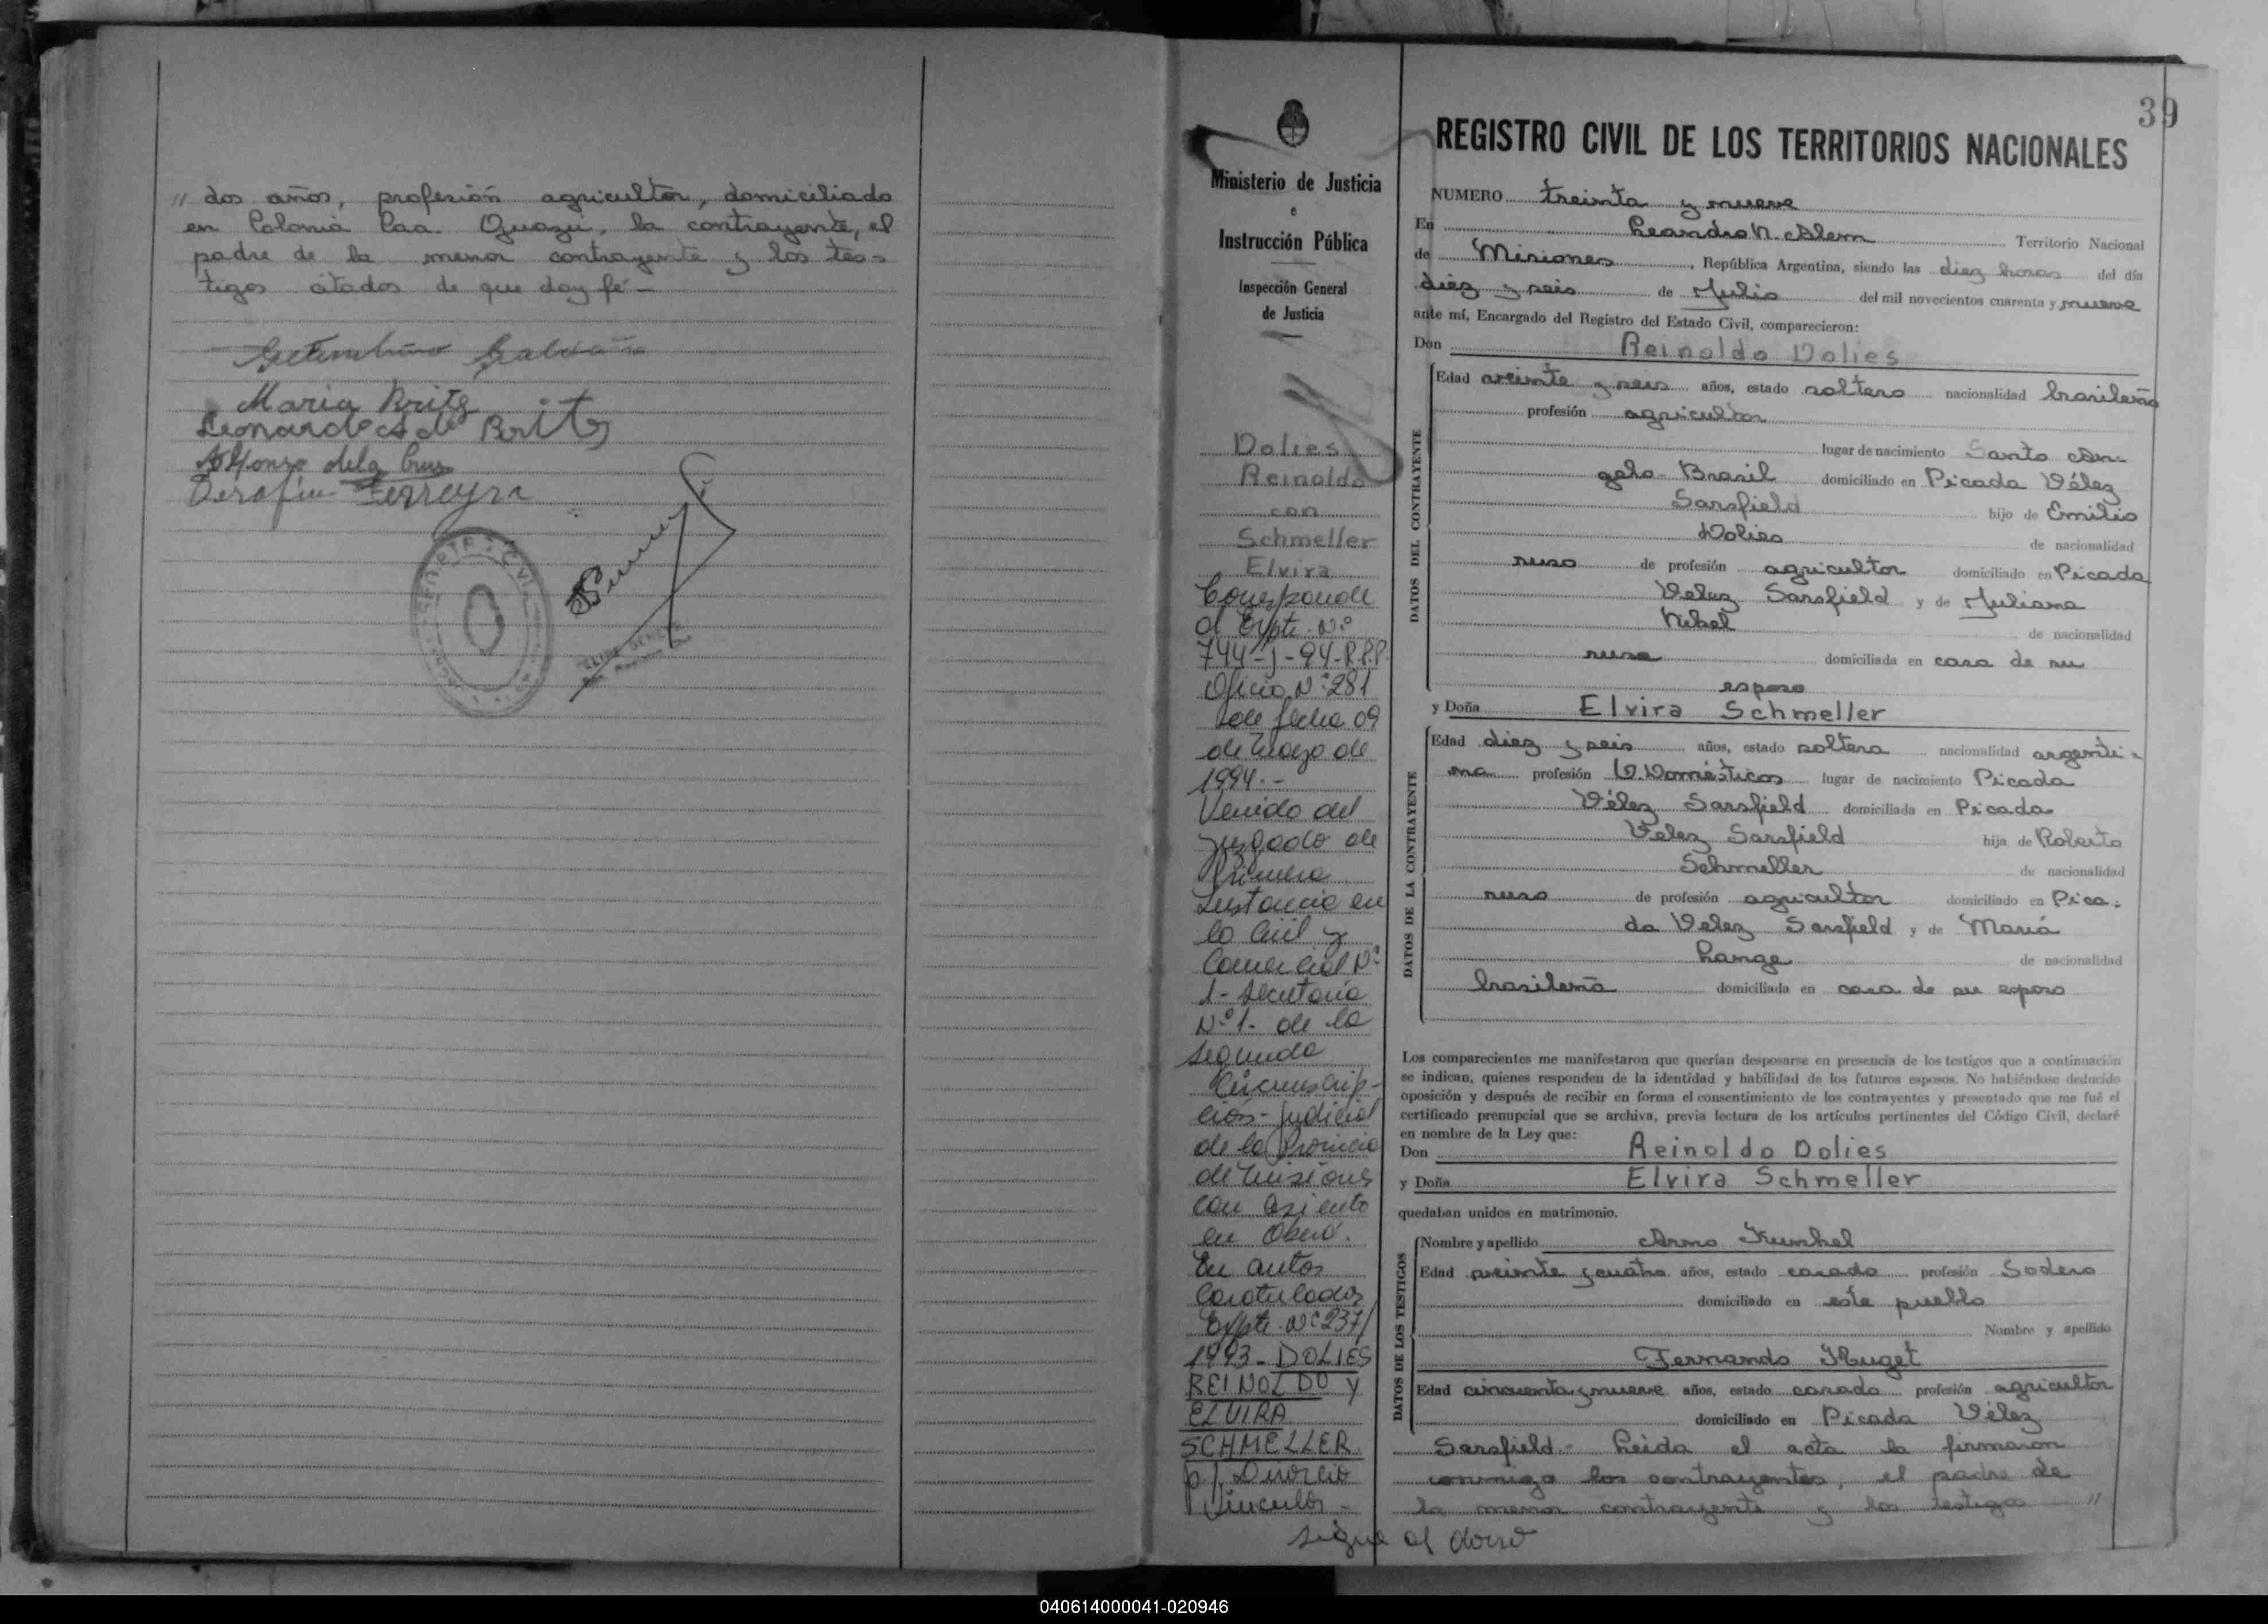 // dos años, profesión agricultor, domiciliado
en Colonia Caa Guazu, la contrayente, el
padre de la menor contrayente y los tes=
tigos citados de que doy fé-
Maria Britz
Leonardo de Britz
Alfonzo dela Cruz
Serafin Ferreyra
39
Ministerio de Justicia
e
Instrucción Pública
Inspección General
de Justicia
Dolies
Reinaldo
con
Schmeller
Elvira
Corresponde
al Expte. Nº
744-J-94-R.P.P.
Oficio Nº 281
de fecha 09
de Marzo de
1994.-
Venido del
Juzgado de
Primera
Instancia en
lo Civil y
Comercial Nº
1- Secretaria
Nº 1- de la
Segunda
Circunscrip-
cion- Judicial
de la Provincia
de Misiones
con Asiento
en Oberá.
En autos
Caratulados
Expte. Nº 237/
1993- DOLIES
REINOLDO Y
ELVIRA
SCHMELLER
p/ Divorcio
Vincular-
sigue al dorso
REGISTRO CIVIL DE LOS TERRITORIOS NACIONALES
NUMERO treinta y nueve
En Leandro N. Alem Territorio Nacional
de Misiones, República Argentina, siendo las diez horas del día
diez y seis de Julio del mil novecientos cuarenta y nueve
ante mí, Encargado del Registro del Estado Civil, comparecieron:
Don Reinoldo Dolies
DATOS DEL CONTRAYENTE
Edad veinte y seis años, estado soltero nacionalidad brasileño
profesión agricultor
lugar de nacimiento Santo An-
gelo- Brasil domiciliado en Picada Vélez
Sarsfield hijo de Emilio
Dolies de nacionalidad
ruso de profesión agricultor domiciliado en Picada
Velez Sarsfield y de Juliana
Nikel de nacionalidad
rusa domiciliada en casa de su
esposo
y Doña Elvira Schmeller
DATOS DE LA CONTRAYENTE
Edad diez y seis años, estado soltera nacionalidad argenti=
na profesión Q. Domésticos lugar de nacimiento Picada
Vélez Sarsfield domiciliada en Picada
Velez Sarsfield hija de Roberto
Schmeller de nacionalidad
ruso de profesión agricultor domiciliado en Pica=
da Velez Sarsfield y de Maria
Lange de nacionalidad
brasileña domiciliada en casa de su esposo
Los comparecientes me manifestaron que querían desposarse en presencia de los testigos que a continuación
se indican, quienes responden de la identidad y habilidad de los futuros esposos. No habiéndose deducido
oposición y después de recibir en forma el consentimiento de los contrayentes y presentado que me fué el
certificado prenupcial que se archiva, previa lectura de los artículos pertinentes del Código Civil, declaré
en nombre de la Ley que:
Don Reinoldo Dolies
y Doña Elvira Schmeller
quedaban unidos en matrimonio.
DATOS DE LOS TESTIGOS
Nombre y apellido Arno Kunkel
Edad veinte y cuatro años, estado casado profesión Sodero
domiciliado en este pueblo
Nombre y apellido
Fernando Huget
Edad cincuenta y nueve años, estado casado profesión agricultor
domiciliado en Picada Vélez
Sarsfield- Leida el acta la firmaron
conmigo los contrayentes, el padre de
la menor contrayente y los testigos //
040614000041-020946